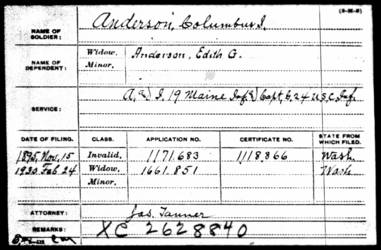 (3-35-6)
NAME OF SOLDIER: Anderson, Columbus I.
NAME OF DEPENDENT: Widow, Anderson, Edith G.
Minor,
SERVICE: A, & I, 19 Maine Inf., Capt, G, 24 U.S.C. Inf.
DATE OF FILING. CLASS. APPLICATION NO. CERTIFICATE NO. STATE FROM WHICH FILED.
1895, Nov, 15 Invalid, 1171,683 1118,866 Wash.
1930. Feb 24 Widow, 1661.851 Wash
Minor,
ATTORNEY: Jas. Tanner
REMARKS: XC 2628840